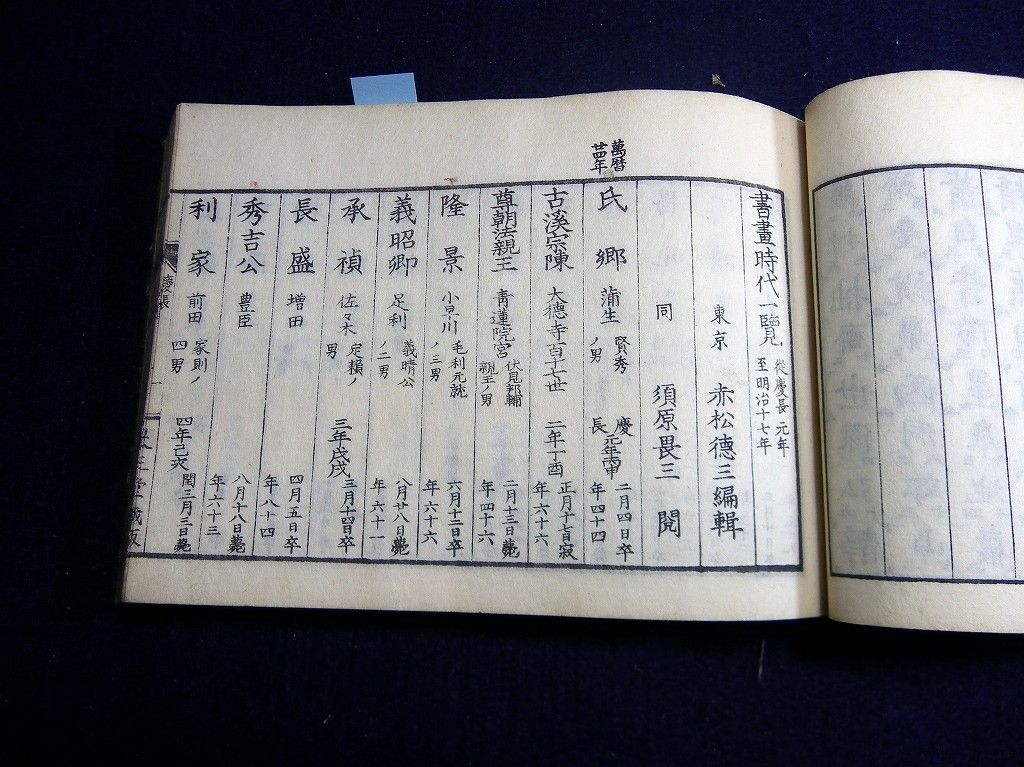 書畫時代一覽 從慶長元年
至明治十七年
東京 赤松德三編輯
同 須原畏三 閲
萬曆
廿四年
氏鄉 蒲生 賢秀ノ男 慶長元年丙申 二月四日卒 年四十四
古溪宗陳 大德寺百十七世 二年丁酉 正月十七日寂 年六十六
尊朝法親王 青蓮院宮 伏見邦輔親王ノ男 二月十三日薨 年四十六
隆景 小早川 毛利元就ノ三男 六月十二日卒 年六十六
義昭卿 足利 義晴公ノ二男 八月廿八日薨 年六十一
承禎 佐々木 定賴ノ男 三年戊戌 三月十四日卒
長盛 増田 四月五日卒 年八十四
秀吉公 豊臣 八月十八日薨 年六十三
利家 前田 家則ノ四男 四年己亥 閏三月三日薨
慶長
一